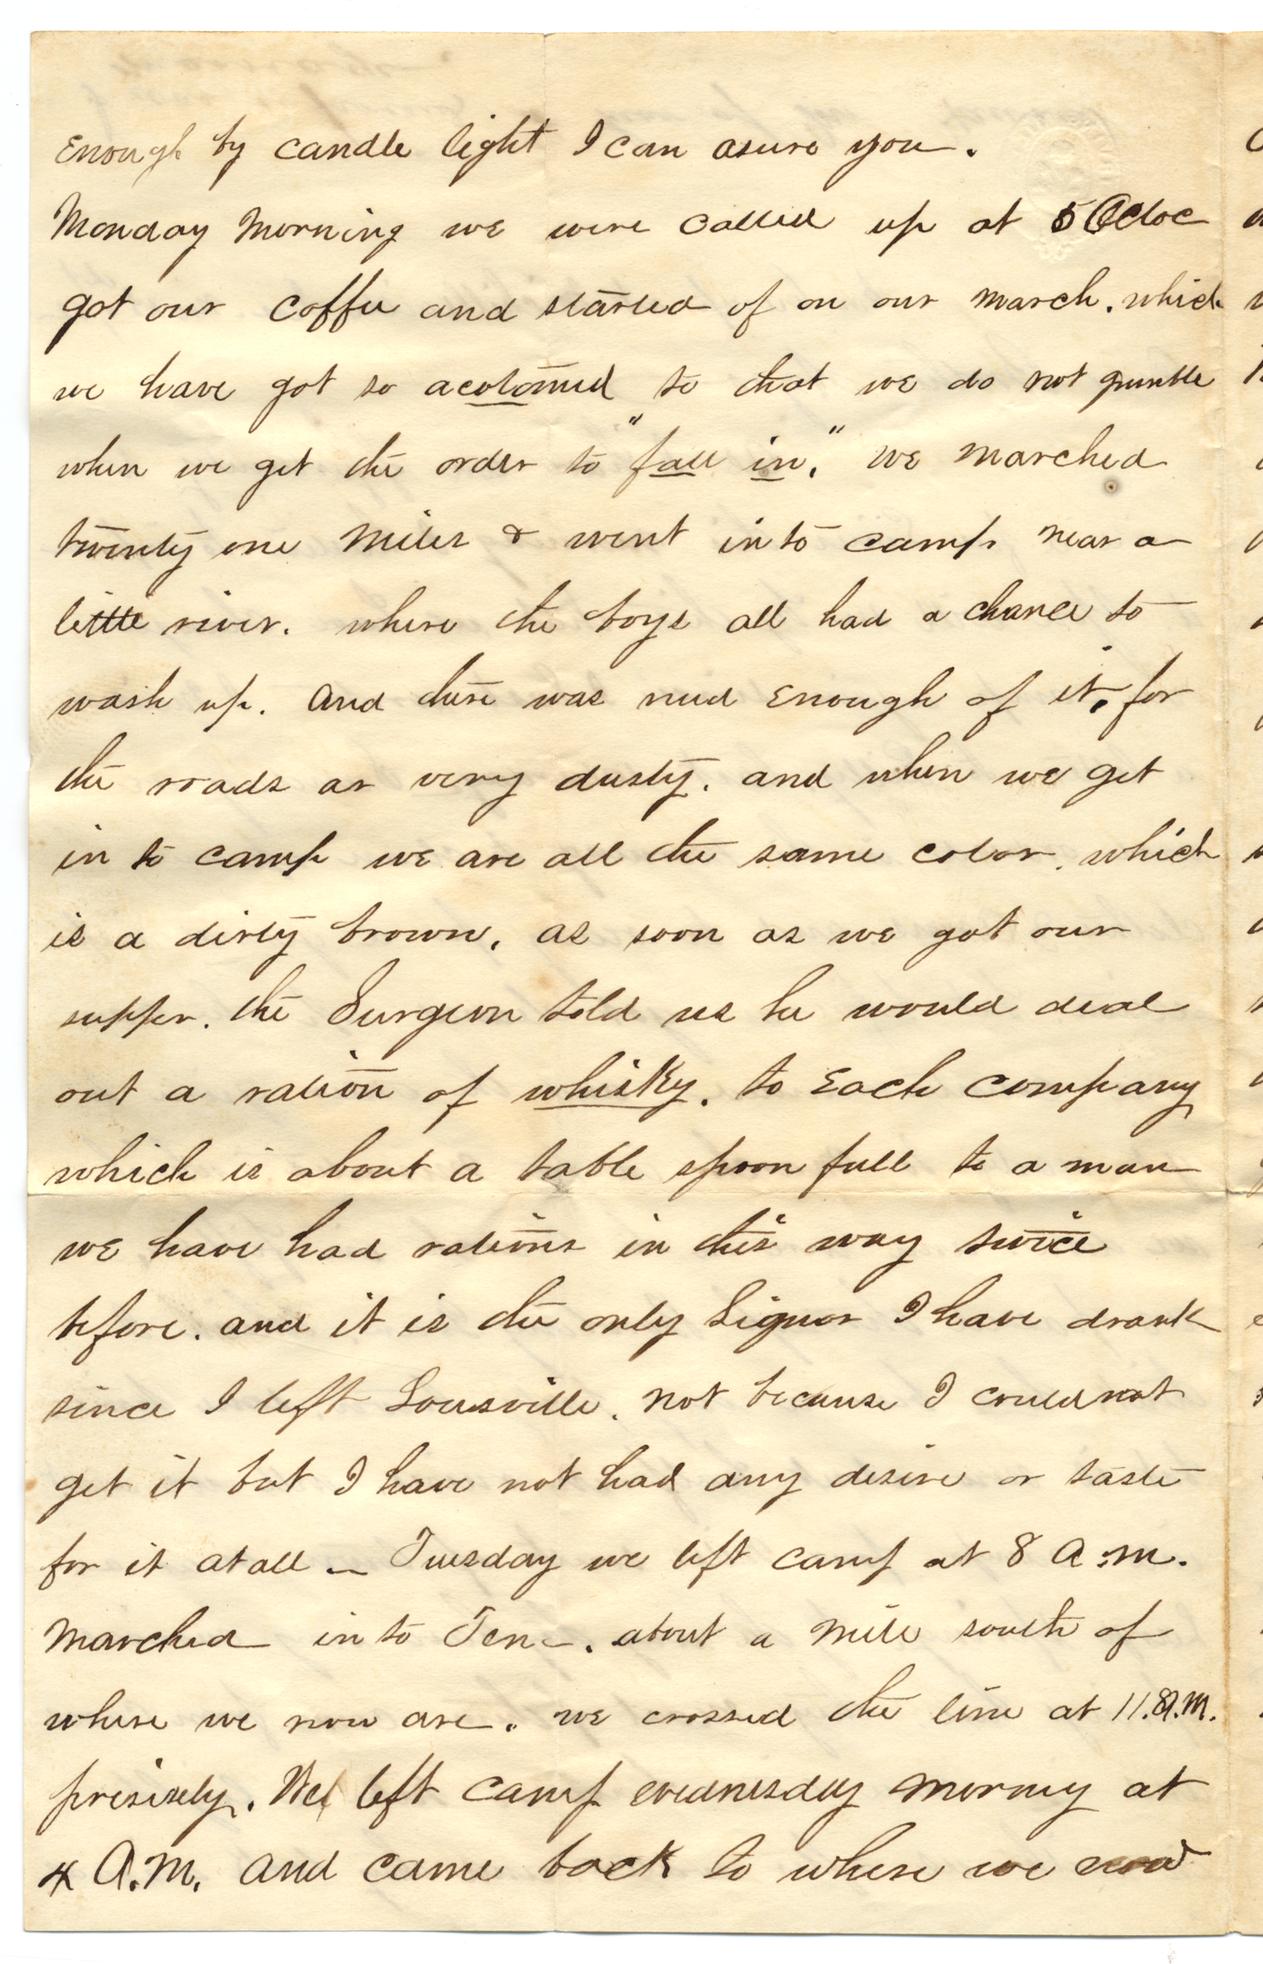 Enough by candle light I can asure you.
Monday Morning we were called up at 5 Ocloc
got our coffee and started of on our march. which
we have got so acolomed to that we do not grumble
when we get the order to "fall in." we marched
twenty one miles & went in to camp near a
little river. where the boys all had a chance to
wash up. and there was need enough of it, for
the roads ar very dusty. and when we get
in to camp we are all the same color. which
is a dirty brown. as soon as we got our
supper. the Surgeon told us he would deal
out a ration of whisky. to each company
which is about a table spoon full to a man
we have had rations in this way twice
before. and it is the only Liquor I have drank
since I left Lousville. not because I could not
get it but I have not had any desire or taste
for it at all — Tuesday we left camp at 8 A.M.
Marched in to Ten-. about a mile south of
where we now are. we crossed the line at 11.A.M.
presisely. We left camp wednesday morning at
4 A.M. and came back to where we now